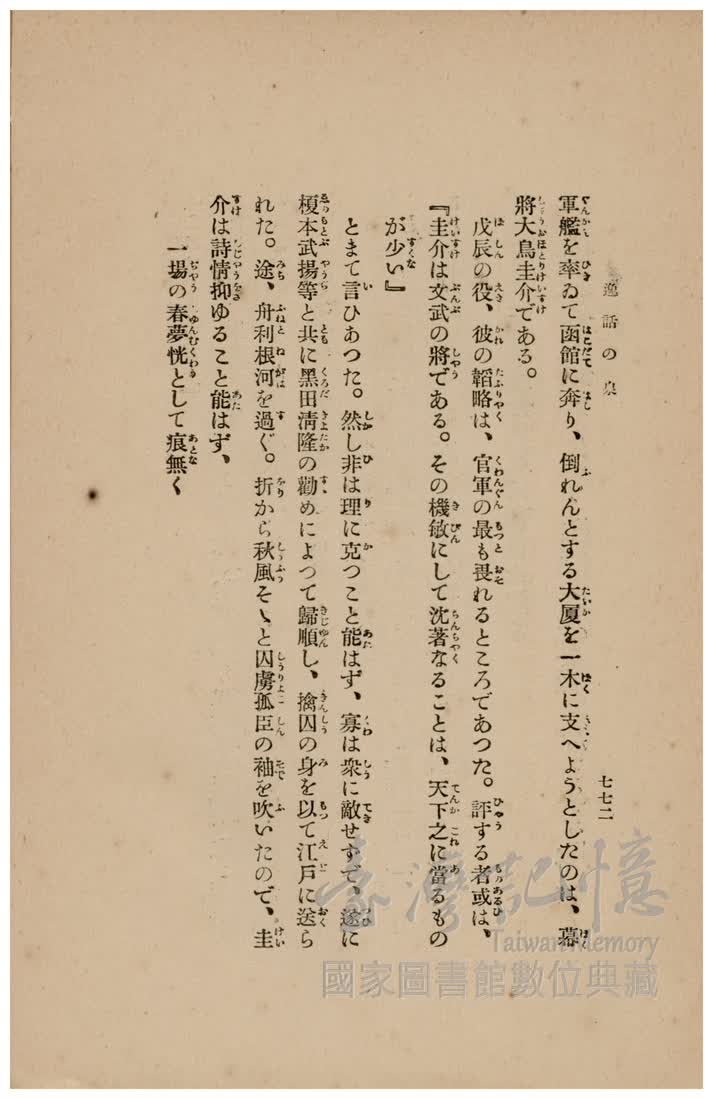 逸話の泉
七七二
軍艦を率ゐて函館に奔り、倒れんとする大厦を一木に支へようとしたのは、幕
將大鳥圭介である。
戊辰の役、彼の韜略は、官軍の最も畏れるところであつた。評する者或は、
『圭介は文武の將である。その機敏にして沈著なることは、天下之に當るもの
が少い』
とまて言ひあつた。然し非は理に克つこと能はず、寡は衆に敵せずで、遂に
榎本武揚等と共に黑田淸隆の勸めによつて歸順し、擒囚の身を以て江戸に送ら
れた。途、舟利根河を過ぐ。折から秋風そゝと囚虜孤臣の袖を吹いたので、圭
介は詩情抑ゆること能はず、
一場の春夢恍として痕無く
臺灣記憶
Taiwan Memory
國家圖書館數位典藏